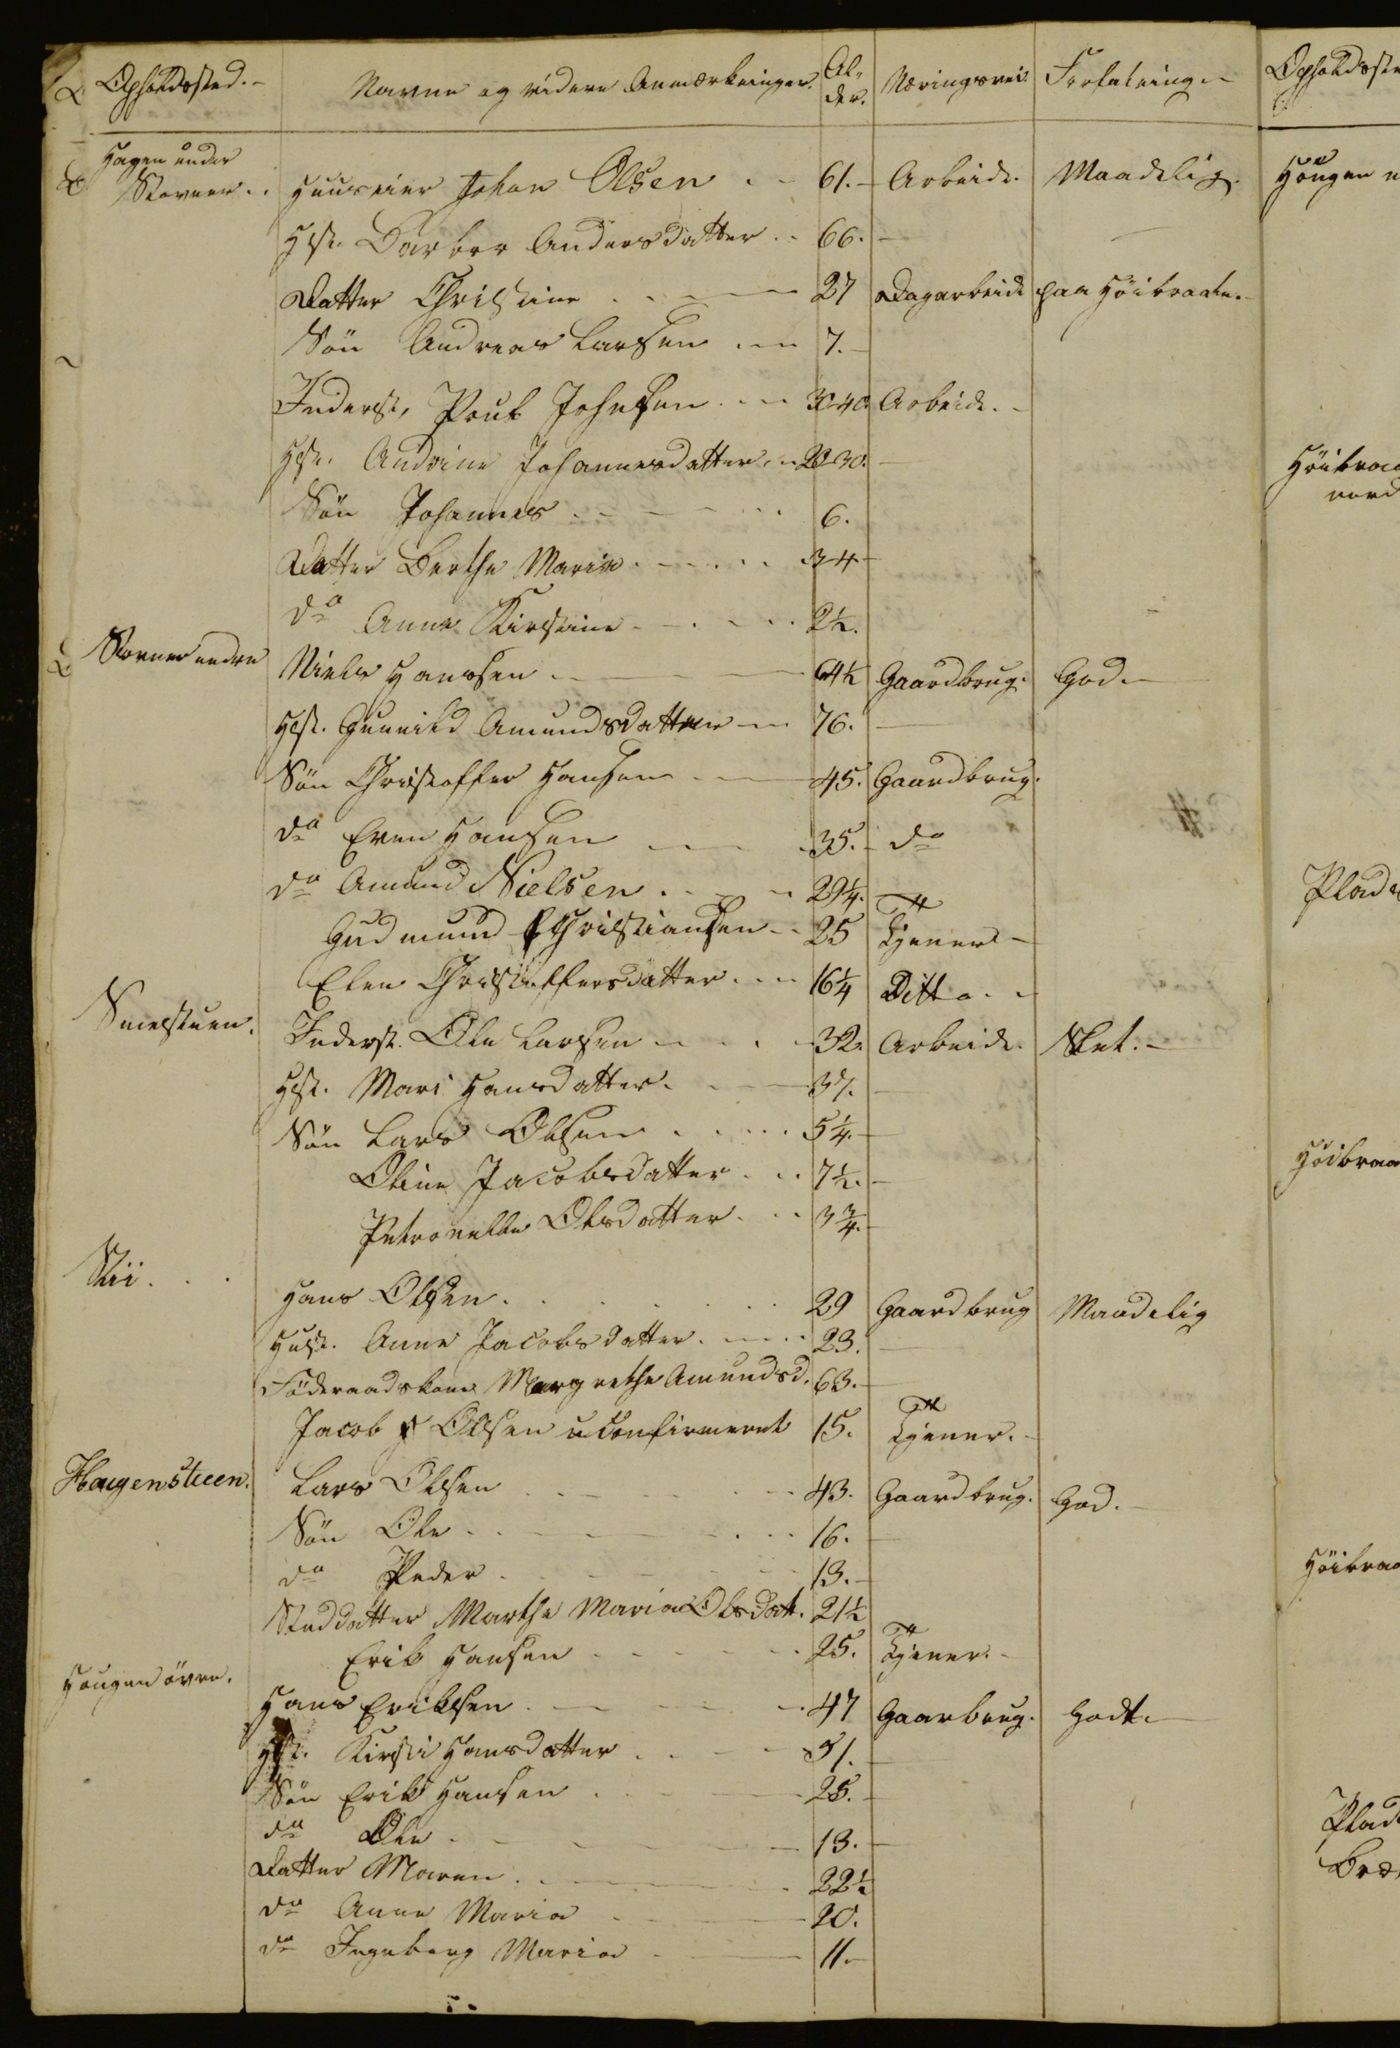 Opholdssted.- Navne og videre Anmærkninger. Al-der. Næringsvei. Forfatning.- Opholdsste
Hagen under
Stovner.. Huuseier Johan Olsen .- 61.- Arbeide. Maadelig. Hougen
Hst. Barbor Andersdatter .. 66. -
Datter Christine .. - - 27 Dagarbeide paa Höibraaten.-
Sön Andreas Larsen .-- 7.-
Inderst, Poul Johnsen .-- 40. Arbeide.-
Hst. Andrine Johannesdatter.- 30. -
Sön Johannes . - - - .. 6.
Datter Berthe Maria .-.-.. 4-
do Anne Kirstine -.-.. 2½.
Stovner nedre Niels Hanssen .. - - - 64½ Gaardbrug. God.-
Hst. Gunild Amundsdatter -- 76. -
Sön Christoffer Hansen - - 45. Gaardbrug.
do Even Hansen - - 35.- do
do Amund Nielsen . - - 29¼.
Gudmund Christiansen -- 25 Tjener -
Elen Christoffersdatter .-- 16¼ Ditto.-
Smedstuen. Inderst. Ole Larsen - . - 32. Arbeide. Slet.-
Hst. Mari Hansdatter. - - 37. -
Sön Lars Olsen . . ... 5¼.-
Oline Jacobsdatter .. 7½.-
Petronelle Olsdatter .. 3¾.-
Stii. . . Hans Olsen. . . . .. 29 Gaardbrug Maadelig
Hust. Anne Jacobsdatter. --.. 23. -
Föderaadskone Margrethe Amundsd. 63.-
Jacob Olsen uconfirmeret 15. Tjener.-
Haugenstuen. Lars Olsen . - - - - 43. Gaardbrug. God.-
Sön Ole . . - - - . .. 16. -
do Peder . - - - - 13.-
Steddatter Marthe Maria Olsdatt. 21½
Erik Hansen - - - - - 25. Tjener.-
Hougen övre. Hans Eriksen . - - - - 47 Gaarbrug. Godt.-
Hst. Kirsti Hansdatter . - - - 51. -
Sön Erik Hansen . - - - 25. -
do Ole . - - - - 13. -
Datter Maren . - - - - 22½
do Anne Maria - - - - 20.
do Ingeborg Maria - - - 11.-
Höibraa
nord
Plads
Höibraa
Höibraa
Plad